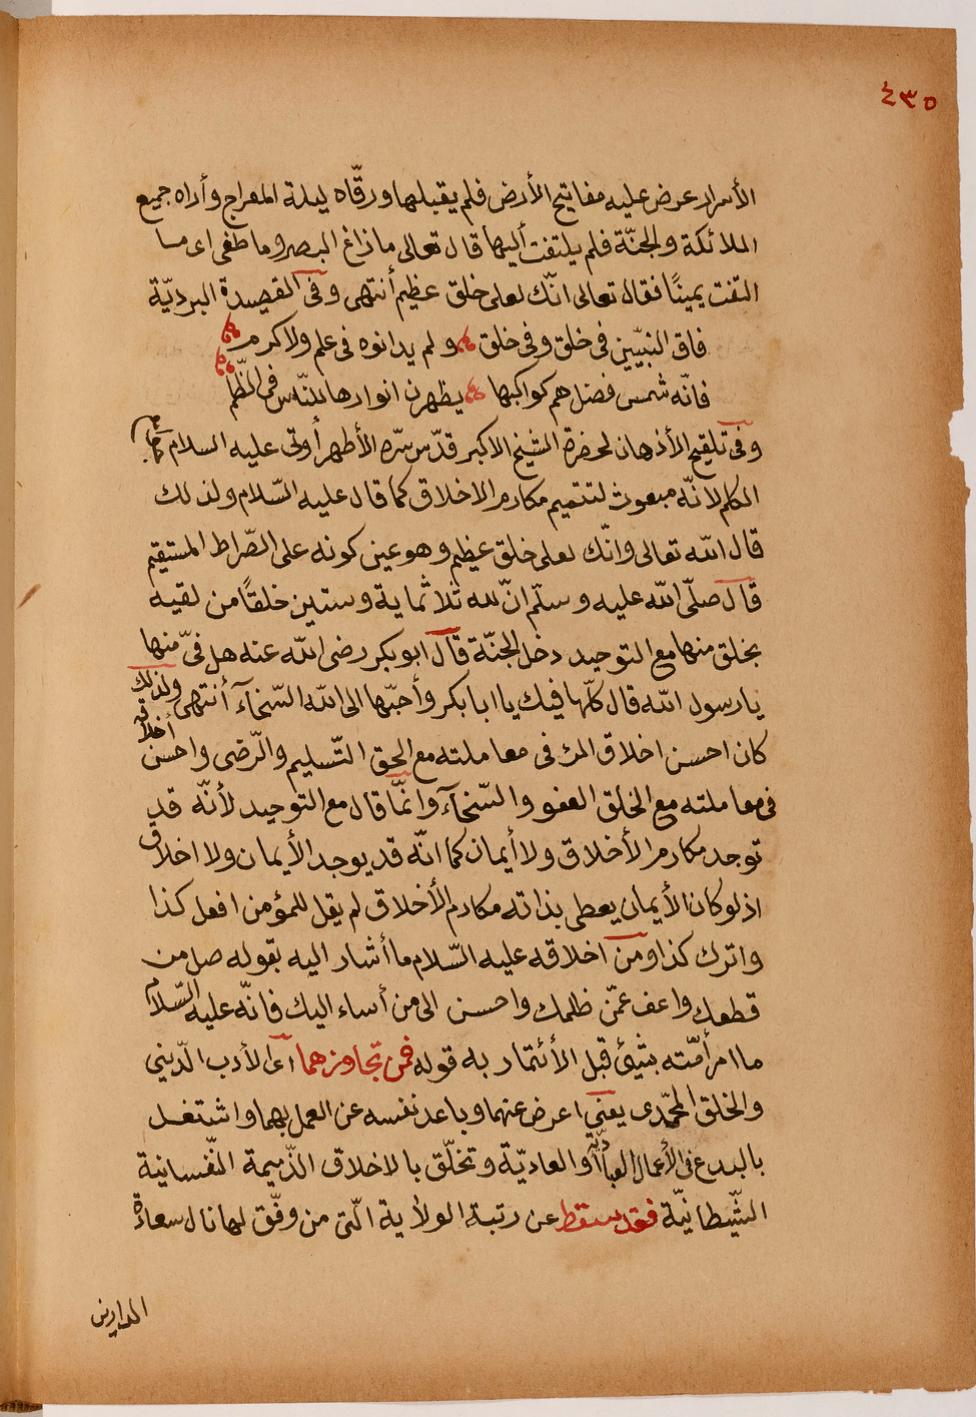 ٤٣٥
الأسرار عرض عليه مفاتيح الأرض فلم يقبلها ورقّاه ليلة المعراج وأراه جميع
الملائكة والجنّة فلم يلتفت أليها قال تعالى ما زاغ البصر وما طغى اى ما
التفت يمينًا فقال تعالى انّك لعلى خلق عظيم أنتهى وفى القصيدة البرديّة
فاق النبيّين فى خلق وفى خلق ولم يدانوه فى علم ولا كرم
فانّه شمس فضل هم كواكبها يظهرن انوارها للنّاس فى الظّلم
وفى تلقيح الأذهان لحضرة الشيخ الاكبر قدّس سّره الأطهر أوتى عليه السلام جوامع
الكلم لانّه مبعوث لتتميم مكارم الاخلاق كما قال عليه السّلام ولذلك
قال اللّه تعالى وانّك لعلى خلق عظيم وهو عين كونه على الصّراط المستقيم
قال صلّى اللّه عليه وسلّم انّ لله ثلاثماية وستين خلقًا من لقيه
بخلق منها مع التوحيد دخل الجنّة قال ابو بكر رضى اللّه عنه هل فىّ منها
يا رسول اللّه قال كلّها فيك يا ابا بكر وأحبّها الى اللّه السّخآء أنتهى ولذلك
كان احسن اخلاق المرء فى معاملته مع الحق التّسليم والّرضى واحسن أخلاقه
فى معاملته مع الخلق العفو والسّخآء وانّما قال مع التوحيد لأنّه قد
توجد مكارم الأخلاق ولا أيمان كما انّه قد يوجد الأيمان ولا اخلاق
اذ لو كان الأيمان يعطى بذاته مكارم الأخلاق لم يقل للمؤمن افعل كذا
واترك كذا ومن اخلاقه عليه السّلام ما أشار اليه بقوله صل من
قطعك واعف عمّن ظلمك واحسن الى من أساء اليك فانّه عليه السّلام
ما امر أمّته بشئ قبل الأئتمار به قوله فمن تجاوزهما اى الأدب الدّينى
والخلق المحمّدى يعنى اعرض عنهما وباعد نفسه عن العمل بهما واشتغل
بالبدع فى الأعمال العباديّة والعاديّة وتخلّق بالاخلاق الذّميمة النّفسانية
الشّيطانيّة فقد سقط عن رتبة الولاية الّتى من وفّق لها نال سعادة
الدارين